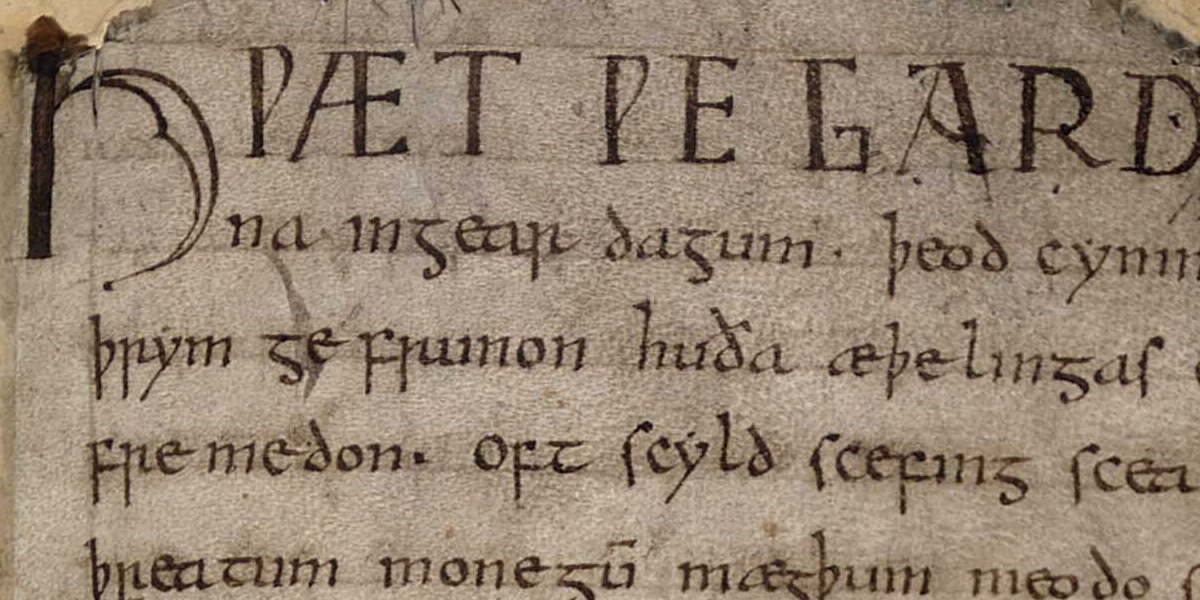 HǷÆT ǷE GARD
na ingear dagum. þeod cynin
þrym ge frunon huða æþelingas
fremedon. oft scyld scefing scea
þreatum monegū mægþum meodo s